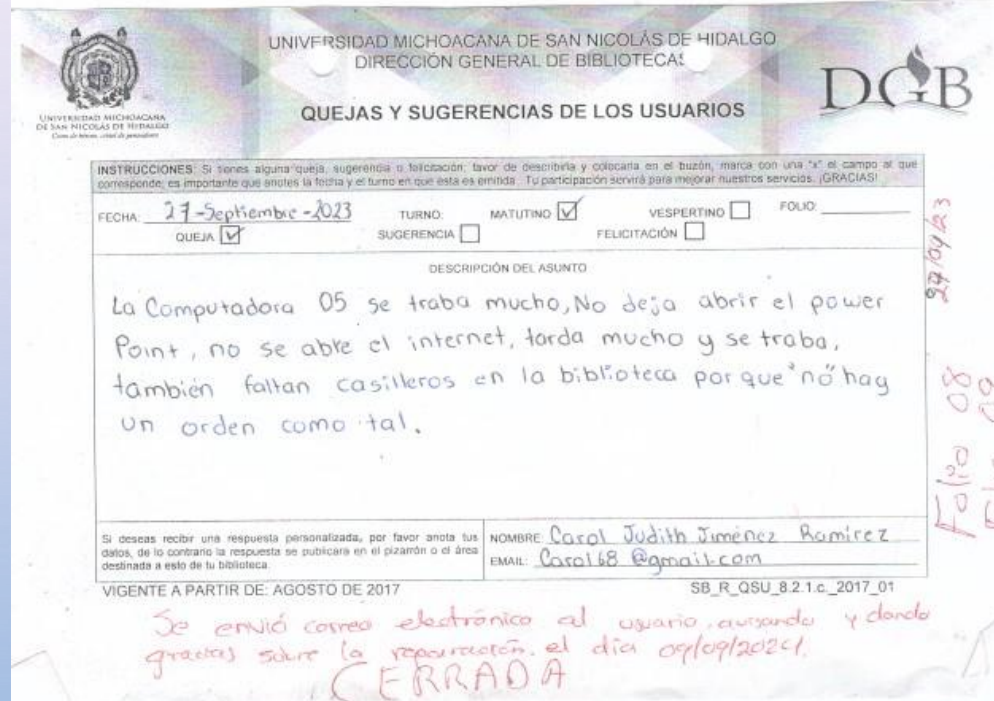 UNIVERSIDAD MICHOACANA DE SAN NICOLÁS DE HIDALGO
DIRECCIÓN GENERAL DE BIBLIOTECAS
UNIVERSIDAD MICHOACANA
DE SAN NICOLÁS DE HIDALGO
Cuna de héroes, crisol de pensadores
DGB
QUEJAS Y SUGERENCIAS DE LOS USUARIOS
INSTRUCCIONES: Si tienes alguna queja, sugerencia o felicitación, favor de describirla y colocarla en el buzón, marca con una "x" el campo al que
corresponde; es importante que anotes la fecha y el turno en que esta es emitida. Tu participación servirá para mejorar nuestros servicios. ¡GRACIAS!
FECHA: 27-Septiembre-2023 TURNO: MATUTINO VESPERTINO FOLIO:
QUEJA SUGERENCIA FELICITACIÓN
DESCRIPCIÓN DEL ASUNTO
La Computadora 05 se traba mucho, No deja abrir el power
Point, no se abre el internet, tarda mucho y se traba,
también faltan casilleros en la biblioteca porque "no" hay
un orden como tal.
Si deseas recibir una respuesta personalizada, por favor anota tus
datos, de lo contrario la respuesta se publicara en el pizarrón o el área
destinada a esto de tu biblioteca.
NOMBRE: Carol Judith Jiménez Ramirez
EMAIL: Carol68@gmail.com
VIGENTE A PARTIR DE: AGOSTO DE 2017 SB_R_QSU_8.2.1.c_2017_01
Se envió correo electrónico al usuario, avisando y dando
gracias sobre la reparación, el día 09/09/2024.
CERRADA
27/09/23
Folio 08